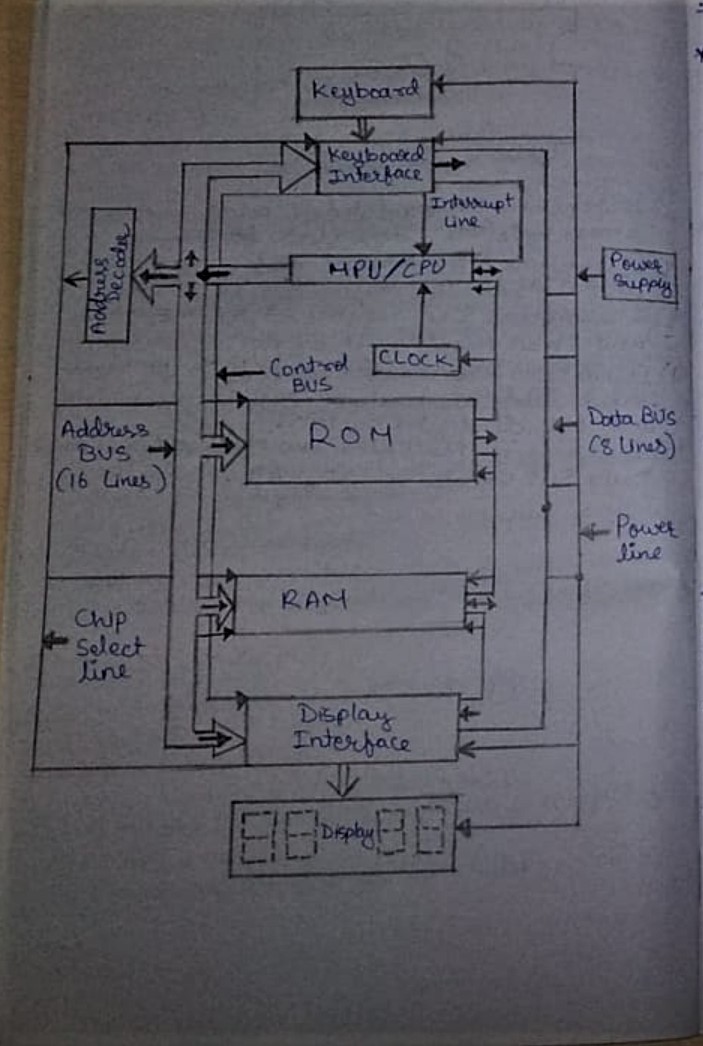 Keyboard
Keyboard
Interface
Interrupt
Line
Address
Decoder
MPU/CPU
Power
Supply
CLOCK
Control
BUS
ROM
Address
BUS
(16 Lines)
Data BUS
(8 Lines)
Power
line
RAM
Chip
Select
line
Display
Interface
Display